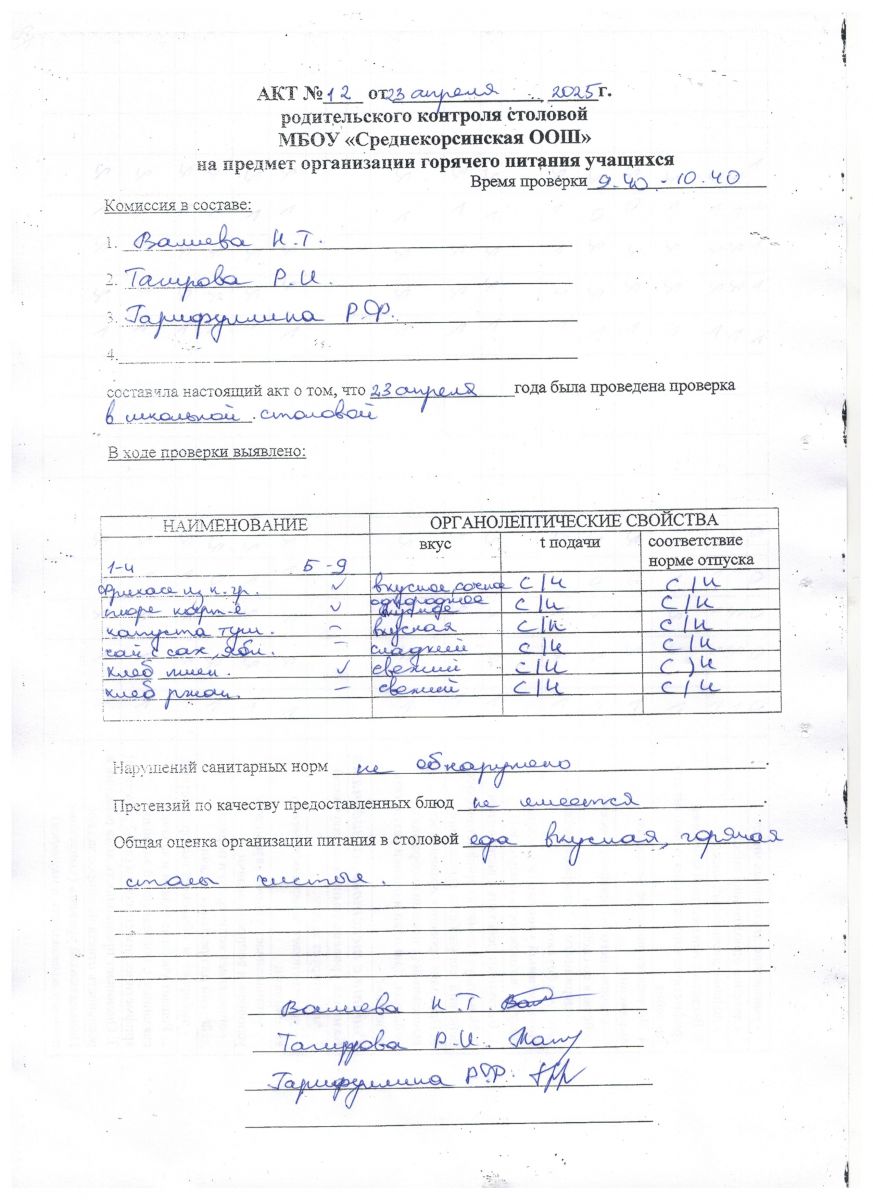 АКТ №12 от 23 апреля 2025г.
родительского контроля столовой
МБОУ «Среднекорсинская ООШ»
на предмет организации горячего питания учащихся
Время проверки 9.40 - 10.40
Комиссия в составе:
1. Валиева Н.Т.
2. Тагирова Р.И.
3. Гарифуллина Р.Ф.
4.
составила настоящий акт о том, что 23 апреля года была проведена проверка
в школьной столовой
В ходе проверки выявлено:
НАИМЕНОВАНИЕ ОРГАНОЛЕПТИЧЕСКИЕ СВОЙСТВА
вкус t подачи соответствие норме отпуска
1-4 5-9
фрикасе из к.гр. ✓ вкусное, сочное С/Н С/Н
пюре карт-е ✓ однородное С/Н С/Н
капуста туш. – вкусная С/Н С/Н
чай с сах, ябл. – сладкий С/Н С/Н
хлеб пшен. ✓ свежий С/Н С/Н
хлеб ржан. – свежий С/Н С/Н
Нарушений санитарных норм не обнаружено.
Претензий по качеству предоставленных блюд не имеется.
Общая оценка организации питания в столовой еда вкусная, горячая
столы чистые.
Валиева Н.Т.
Тагирова Р.И.
Гарифуллина Р.Ф.